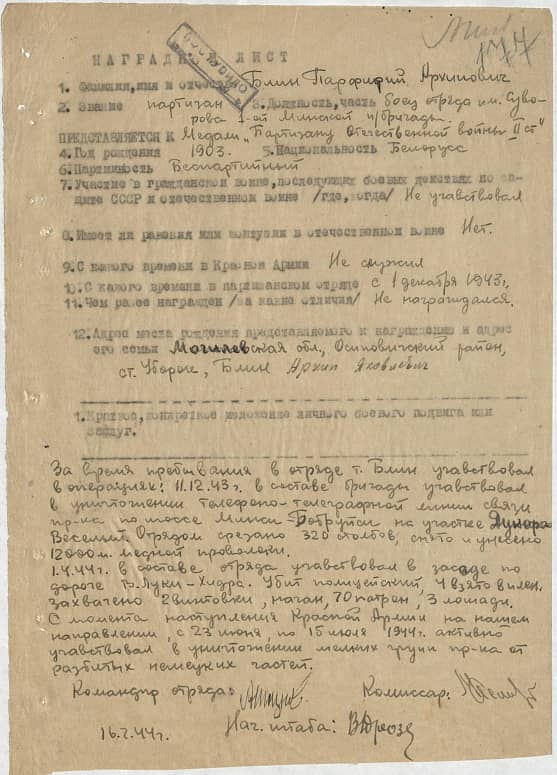 174
НАГРАДНОЙ ЛИСТ
1. Фамилия, имя и отчество Блин Парфирий Архипович
2. Звание партизан 3. Должность, часть боец отряда им. Суво-
рова 1-ой Минской п/бригады.
ПРЕДСТАВЛЯЕТСЯ К Медали "Партизану Отечественной войны II ст"
4. Год рождения 1903. 5. Национальность Белорус
6. Партийность Беспартийный
7. Участие в гражданской войне, последующих боевых действях по за-
щите СССР и отечественном войне /где, когда/ Не учавствовал
8. Имеет ли ранения или контузии в отечественном войне Нет.
9. С какого времени в Красной Армии Не служил
10. С какого времени в партизанском отряде с 1 декабря 1943 г.
11. Чем ранее награжден /за какие отличия/ Не награждался.
12. Адрес места рождения представляемого к награждению и адрес
его семьи Могилевская обл., Осиповичский район,
ст. Уборок, Блин Архип Яковлевич
1. Краткое, конкретное изложение личного боевого подвига или
заслуг.
За время пребывания в отряде т. Блин учавствовал
в операциях: 11.12.43 г. в составе бригады учавствовал
в уничтожении телефоно-телеграфной линии связи
пр-ка по шоссе Минск-Бобруйск на участке Дукора
Веселый. Отрядом срезано 320 столбов, снято и унесено
12000 м. медной проволоки.
1.4.44 г. в составе отряда учавствовал в засаде по
дороге Б. Луки-Хидра. Убит полицейский, 4 взято в плен.
Захвачено 2 винтовки, наган, 70 патрон, 3 лошади.
С момента наступления Красной Армии на нашем
направлении, с 23 июня, по 15 июля 1944 г. активно
учавствовал в уничтожении мелких групп пр-ка от
разбитых немецких частей.
Командир отряда: Комиссар:
16.7.44 г. Нач. штаба: